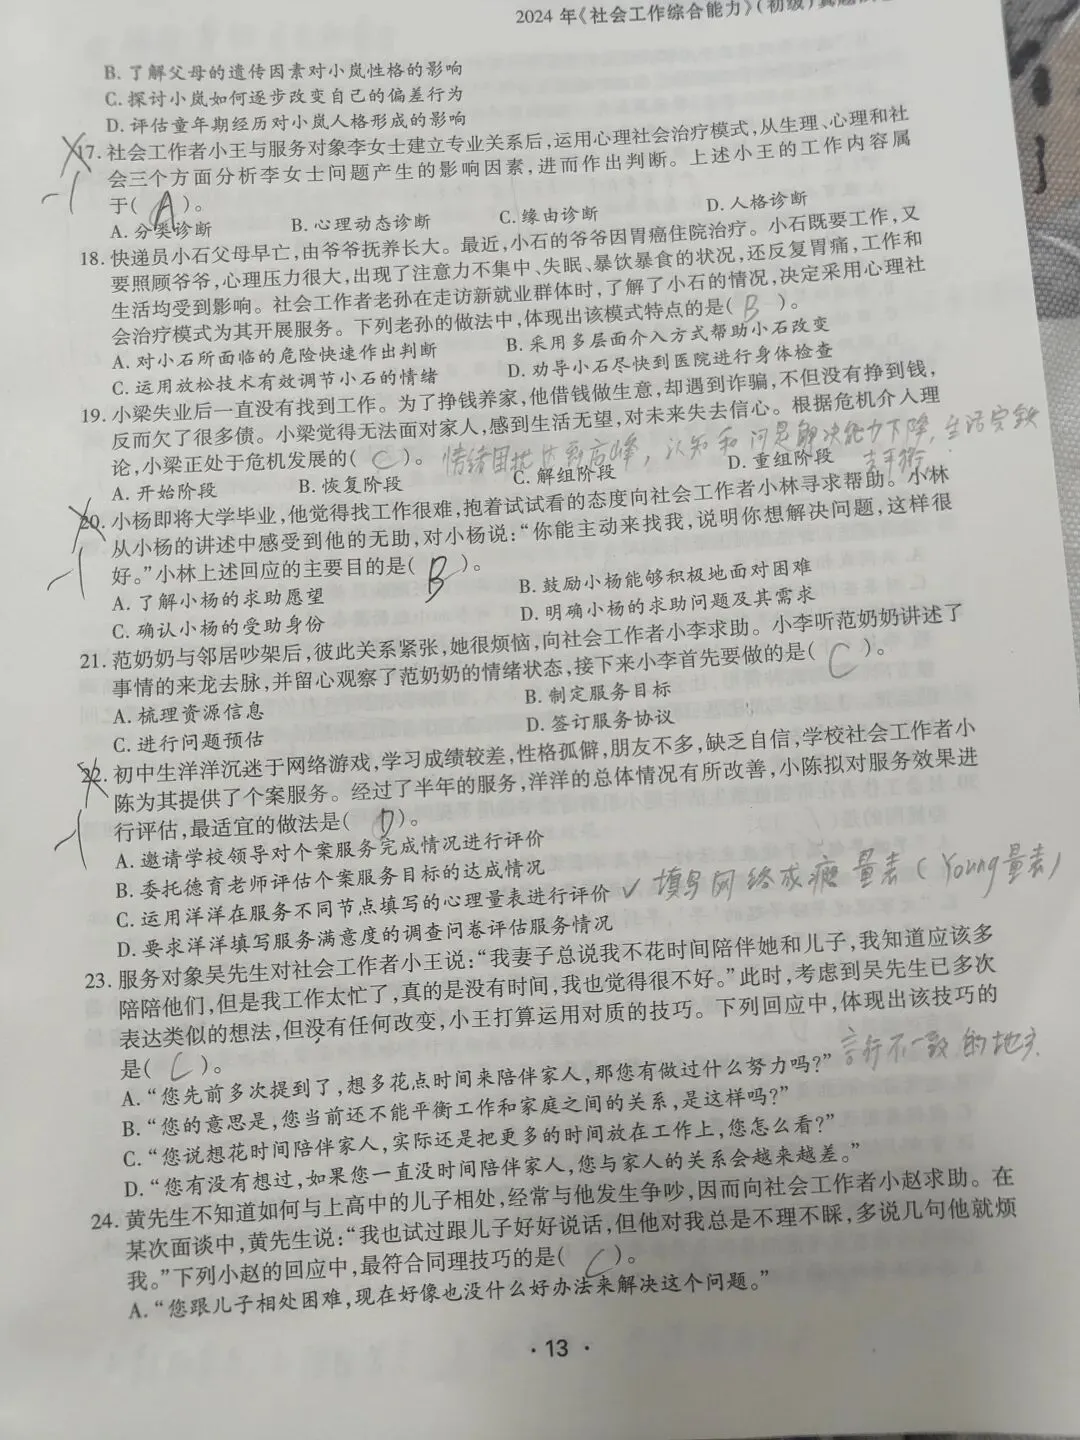 2024 年《社会工作综合能力》(初级)真题
B. 了解父母的遗传因素对小岚性格的影响
C. 探讨小岚如何逐步改变自己的偏差行为
D. 评估童年期经历对小岚人格形成的影响
17. 社会工作者小王与服务对象李女士建立专业关系后,运用心理社会治疗模式,从生理、心理和社
会三个方面分析李女士问题产生的影响因素,进而作出判断。上述小王的工作内容属
-1
于( A )。
A. 分类诊断 B. 心理动态诊断 C. 缘由诊断 D. 人格诊断
18. 快递员小石父母早亡,由爷爷抚养长大。最近,小石的爷爷因胃癌住院治疗。小石既要工作,又
要照顾爷爷,心理压力很大,出现了注意力不集中、失眠、暴饮暴食的状况,还反复胃痛,工作和
生活均受到影响。社会工作者老孙在走访新就业群体时,了解了小石的情况,决定采用心理社
会治疗模式为其开展服务。下列老孙的做法中,体现出该模式特点的是( B )。
A. 对小石所面临的危险快速作出判断 B. 采用多层面介入方式帮助小石改变
C. 运用放松技术有效调节小石的情绪 D. 劝导小石尽快到医院进行身体检查
19. 小梁失业后一直没有找到工作。为了挣钱养家,他借钱做生意,却遇到诈骗,不但没有挣到钱,
反而欠了很多债。小梁觉得无法面对家人,感到生活无望,对未来失去信心。根据危机介入理
论,小梁正处于危机发展的( C )。 情绪困扰达到高峰,认知和问题解决能力下降,生活完全
失平衡
A. 开始阶段 B. 恢复阶段 C. 解组阶段 D. 重组阶段
20. 小杨即将大学毕业,他觉得找工作很难,抱着试试看的态度向社会工作者小林寻求帮助。小林
从小杨的讲述中感受到他的无助,对小杨说:“你能主动来找我,说明你想解决问题,这样很
-1
好。”小林上述回应的主要目的是( B )。
A. 了解小杨的求助愿望 B. 鼓励小杨能够积极地面对困难
C. 确认小杨的受助身份 D. 明确小杨的求助问题及其需求
21. 范奶奶与邻居吵架后,彼此关系紧张,她很烦恼,向社会工作者小李求助。小李听范奶奶讲述了
事情的来龙去脉,并留心观察了范奶奶的情绪状态,接下来小李首先要做的是( C )。
A. 梳理资源信息 B. 制定服务目标
C. 进行问题预估 D. 签订服务协议
22. 初中生洋洋沉迷于网络游戏,学习成绩较差,性格孤僻,朋友不多,缺乏自信,学校社会工作者小
陈为其提供了个案服务。经过了半年的服务,洋洋的总体情况有所改善,小陈拟对服务效果进
-1
行评估,最适宜的做法是( D )。
A. 邀请学校领导对个案服务完成情况进行评价
B. 委托德育老师评估个案服务目标的达成情况
C. 运用洋洋在服务不同节点填写的心理量表进行评价 ✓ 填写网络成瘾量表(Young量表)
D. 要求洋洋填写服务满意度的调查问卷评估服务情况
23. 服务对象吴先生对社会工作者小王说:“我妻子总说我不花时间陪伴她和儿子,我知道应该多
陪陪他们,但是我工作太忙了,真的是没有时间,我也觉得很不好。”此时,考虑到吴先生已多次
表达类似的想法,但没有任何改变,小王打算运用对质的技巧。下列回应中,体现出该技巧的
是( C )。 言行不一致的地方
A. “您先前多次提到了,想多花点时间来陪伴家人,那您有做过什么努力吗?”
B. “您的意思是,您当前还不能平衡工作和家庭之间的关系,是这样吗?”
C. “您说想花时间陪伴家人,实际还是把更多的时间放在工作上,您怎么看?”
D. “您有没有想过,如果您一直没时间陪伴家人,您与家人的关系会越来越差。”
24. 黄先生不知道如何与上高中的儿子相处,经常与他发生争吵,因而向社会工作者小赵求助。在
某次面谈中,黄先生说:“我也试过跟儿子好好说话,但他对我总是不理不睬,多说几句他就烦
我。”下列小赵的回应中,最符合同理技巧的是( C )。
A. “您跟儿子相处困难,现在好像也没什么好办法来解决这个问题。”
· 13 ·